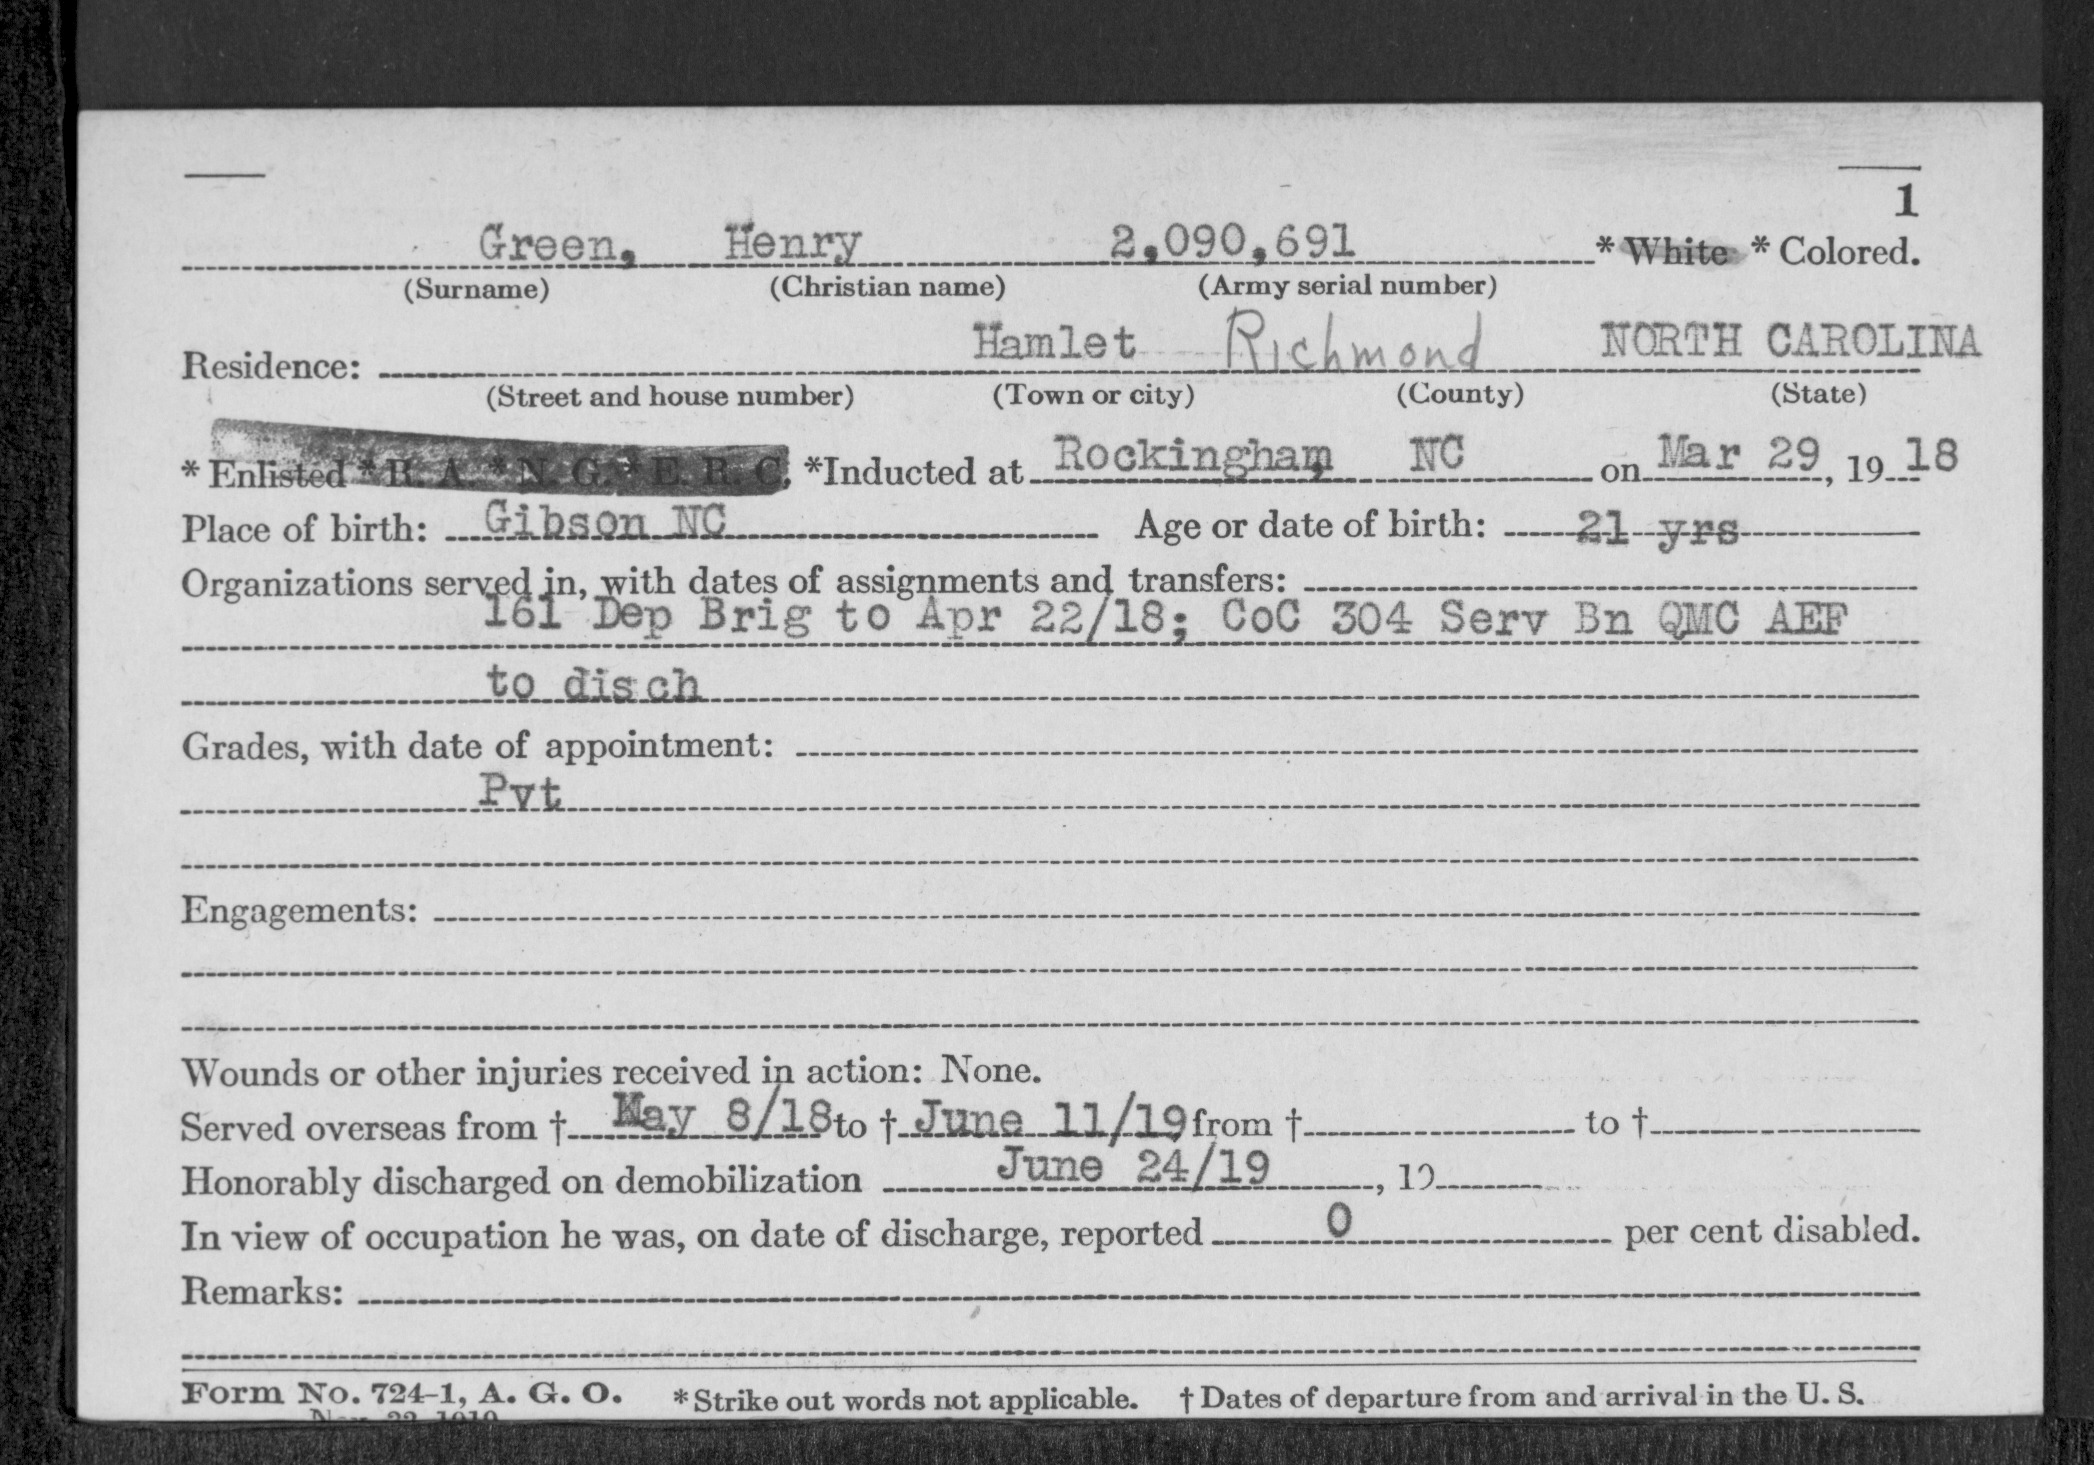 1
Green, Henry 2,090,691 * White * Colored.
(Surname) (Christian name) (Army serial number)
Hamlet Richmond NORTH CAROLINA
Residence:
(Street and house number) (Town or city) (County) (State)
* Enlisted * R. A. * N. G. * E. R. C. *Inducted at Rockingham, NC on Mar 29, 19 18
Place of birth: Gibson NC Age or date of birth: 21 yrs
Organizations served in, with dates of assignments and transfers:
161 Dep Brig to Apr 22/18; CoC 304 Serv Bn QMC AEF
to disch
Grades, with date of appointment:
Pvt
Engagements:
Wounds or other injuries received in action: None.
Served overseas from † May 8/18 to † June 11/19 from † to †
Honorably discharged on demobilization June 24/19, 19
In view of occupation he was, on date of discharge, reported 0 per cent disabled.
Remarks:
Form No. 724-1, A. G. O. * Strike out words not applicable. † Dates of departure from and arrival in the U. S.